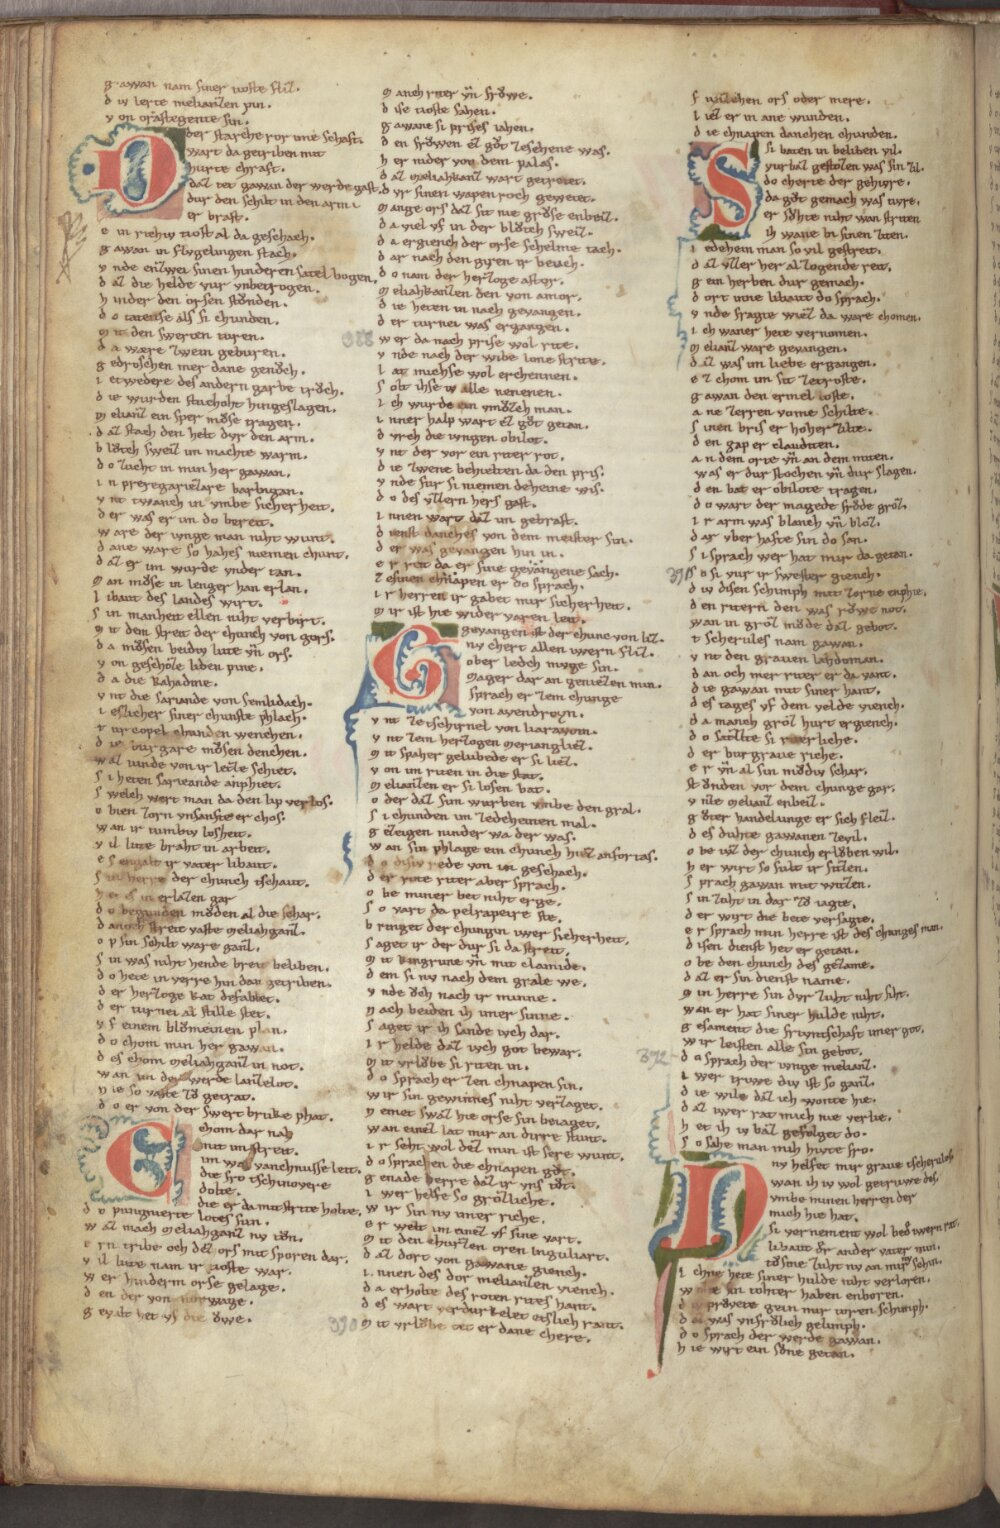 g awan nam siner tioste stil.
d iv lerte melianzen pin.
v on orastegente sin.
Der starche ror vnie schaft.
wart da getriben mit
hurte chraft.
daz tet gawan der werde gast.
dur den schilt in den arm i
er brast.
e in richiv tiost al da geschach.
g awan in flvgelingen stach.
v nde enzwei sinen hinderen satel bogen.
d az die helde vur vnbetrogen.
h inder den orsen stůnden.
d o tatense als si chunden.
m it den swerten tvren.
d a ware zwein geburen.
g edroschen mer dane genůch.
i etwedere des andern garbe trůch.
d ie wurden stuchoht hingeslagen.
m elianz ein sper můse tragen.
d az stach den helt dvr den arm.
b lůtch sweiz im machte warm.
d o zucht in min her gawan.
i n preregarizare barbigan.
v nt twanch in vmbe sicherheit.
d er was er im do bereit.
w are der ivnge man niht wunt.
d ane ware so gahes niemen chunt.
d az er im wurde vnder tan.
m an můse in lenger han erlan.
l ibaut des landes wirt.
s in manheit ellen niht verbirt.
m it dem streit der chunch von gors.
d a můsen beidiv lute vñ ors.
v on geschoze liden pine.
d a die kahadine.
v nt die sariande von semblidach.
i eslicher siner chunste phlach.
t urcopel chunden wenchen.
d ie burgare můsen denchen.
w az vinde von ir lezze schiet.
s i heten sarieande anphiet.
s welch wert man da den lip verlos.
o bien zorn vnsanfte er chos.
w an ir tumbiv losheit.
v il lute braht in arbeit.
e s engalt ir vater libaut.
s in herre der chunch tschaut.
h et es in erlazen gar
d o begunden můden al die schar.
d anoch streit vaste meliahganz.
o p sin schilt ware ganz.
s in was niht hende breit beliben.
d o hete in verre hin dan getriben.
d er herzoge kardefablet.
d er turnei al stille stet.
v f einem blůmeinen plan.
d o chom min her gawan.
d es chom meliahganz in not.
w an im der werde lanzelot.
n ie so vaste zů getrat.
d o er von der swert bruke phat.
Chom dar nah
mit im streit.
im was vanchnusse leit.
die fro tschinovere
dolte.
die er da mit strite holte.
d o pungierte lotes sun.
w az mach meliahganz nv tůn.
e rn tribe och dez ors mit sporen dar.
v il lute nam ir tioste war.
w er hinderm orse gelage.
d en der von norwage.
g evalt het vf die ůwe.
m anch riter vñ frůwe.
d ise tioste sahen.
g awane si prises iahen.
d en frůwen ez gůt zesehene was.
h er nider von dem palas.
d az meliahkanz wart getretet.
d vr sinen wapen roch gewetet.
m ange ors daz sit nie grůse enbeiz.
d a viel vf in der blůtch sweiz.
d a ergiench der orse schelme tach.
d ar nach den giren ir beiach.
d o nam der herzoge astor.
m eliahkanzen den von iamor.
d ie heten in nach gevangen.
d er turnei was ergangen.
w er da nach prise wol rite.
v nde nach der wibe lone strite.
i at muchse wol erchennen.
s olt ihse iv alle nenenen.
i ch wurde ein vnmůzech man.
i nner halp wart ez gůt getan.
d vrch die ivngen obilot.
v nt der vor ein riter rot.
d ie zwene behielten da den pris.
v nde fur si niemen deheine wis.
d o des vzzern hers gast.
i nnen wart daz im gebrast.
d ienst danches von dem meister sin.
d er was gevangen hin in.
e r reit da er sine gevangene sach.
z esinen chnapen er do sprach.
i r herren ir gabet mir sicherheit.
m ir ist hie wider varen leit.
Gevangen ist der chunc von liz.
nv chert allen uwern fliz.
ober ledch muge sin.
mager dar an geniezen min.
sprach er zem chunge
von avendroyn.
v nt zetschirnel von liarayom.
v nt zem herzogen meriangliez.
m it spaher gelubede er si liez.
v on im riten in die stat.
m elianzen er si losen bat.
o der daz sun wurben vmbe den gral.
s i chunden im zedeheinen mal.
g ezeigen ninder wa der was.
w an sin phlage ein chunch hiez anfortas.
d o disiv rede von in geschach.
d er rote riter aber sprach.
o be miner bet niht erge.
s o vart da pelrapeire ste.
b ringet der chungin iwer sicherheit.
s aget ir der dur si da streit.
m it kingrune vñ mit clamide.
d em si nv nach dem grale we.
v nde ůch nach ir minne.
n ach beiden ih imer sinne.
s aget ir ih sande ivch dar.
i r helde daz ivch got bewar.
m it vrlůbe si riten in.
d o sprach er zen chnapen sin.
w ir sin gewinnes niht verzaget.
n emet swaz hie orse sin beiaget.
wan einez lat mir an dirre stunt.
i r seht wol dez min ist sere wunt.
d o sprachen die chnapen gůt.
g enade herre daz ir vns tůt.
i wer helfe so grozliche.
w ir sin nv imer riche.
e r welt im einez vf sine vart.
m it den churzen oren inguliart.
d az dort von gawane giench.
i nnen des dor melianzen viench.
d a erholte des roten rites hant.
d es wart verdurkelet etslich rant.
390 m it vrlůbe tet er dane chere.
f unzehen ors oder mere.
l iez er in ane wunden.
d ie chnapen danchen chunden.
Si baten in beliben vil.
vurbaz gestozen was sin zil.
do cherte der gehivre.
da grůz gemach was tivre.
er sůhte niht wan striten
ih wane bi sinen ziten.
i edehein man so vil gestreit.
d az vzzer her al zogende reit.
g ein herben dur gemach.
d ort inne libaut do sprach.
v nde fragte wiez da ware chomen.
i ch waner hete vernomen.
m elianz ware gevangen.
d az was im liebe ergangen.
e z chom im sit zetroste.
g awan den ermel loste.
a ne zerren vonme schilte.
s inen bris er hoher zilte.
d en gap er clauditen.
a n dem orte vñ an dem miten.
was er dur stochen vñ dur slagen.
d en bat er obilote tragen.
d o wart der magede frůde grůz.
i r arm was blanch vñ bloz.
d ar vber hafte sin do san.
s i sprach wer hat mir da getan.
391 s o si vur ir swester giench.
d iv disen schimph mit zorne enphie.
d en ritern den was růwe not.
wan in grůz můde daz gebot.
t scherules nam gawan.
v nt den graven lahdoman.
d an och mer riter er da vant.
d ie gawan mit siner hant.
d es tages vf dem velde viench.
d a manch grůz hurt ergiench.
d o sazzte si riterliche.
d er burgrave riche.
e r vñ al sin můdiv schar.
st ůnden vor dem chunge gar.
v nze melianz enbeiz.
g ůter handelunge er sich fleiz.
d es duhte gawanen zevil.
o be iuz der chunch erlůben wil.
h er wirt so sult ir sitzen.
s prach gawan mit witzen.
s in zuht in dar zů iagte.
d er wirt die bete versagte.
e r sprach min herre ist des chunges man.
d isen dienst het er getan.
o be den chunch des gezame.
d az er sin dienst name.
m in herre sin dvr zuht niht siht.
wan er hat siner hulde niht.
g esament die frivntschaft imer got.
w ir leisten alle sin gebot.
392 d o sprach der ivnge melianz.
i wer triwe div ist so ganz.
d ie wile daz ich wonte hie.
d az iwer rat mich nie verlie.
h et ih iv baz gefolget do.
s o sahe man mih hivte fro.
Nv helfet mir grave tscherulos
wan ih iv wol getruwe des.
vmbe minen herren der
mich hie hat.
si vernement wol bed iwern rat.
libaut der ander vater min.
tů sine zuht nv an mir schin.
i chne hete siner hulde niht verloren.
w olde sin tohter haben enboren.
d iv průvete gein mir toren schimph.
d az was vnfrůlich gelimph.
d o sprach der werde gawan.
h ie wirt ein sůne getan.